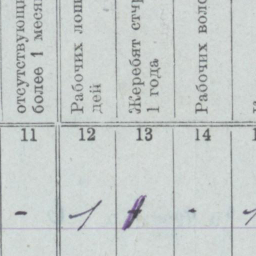 отсутствующи
более 1 меся
Рабочих лош
дей
Жеребят ст
1 года
Рабочих вол
11 12 13 14 1
- 1 - 1